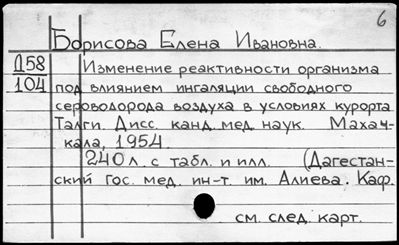 6
Борисова Елена Ивановна.
Д58
104
Изменение реактивности организма
под влиянием ингаляции свободного
сероводорода воздуха в условиях курорта
Талги. Дисс. канд. мед. наук. Махач-
кала, 1954.
240 л. с табл. и илл. (Дагестан-
ский гос. мед. ин-т. им. Алиева. Каф.
см. след. карт.